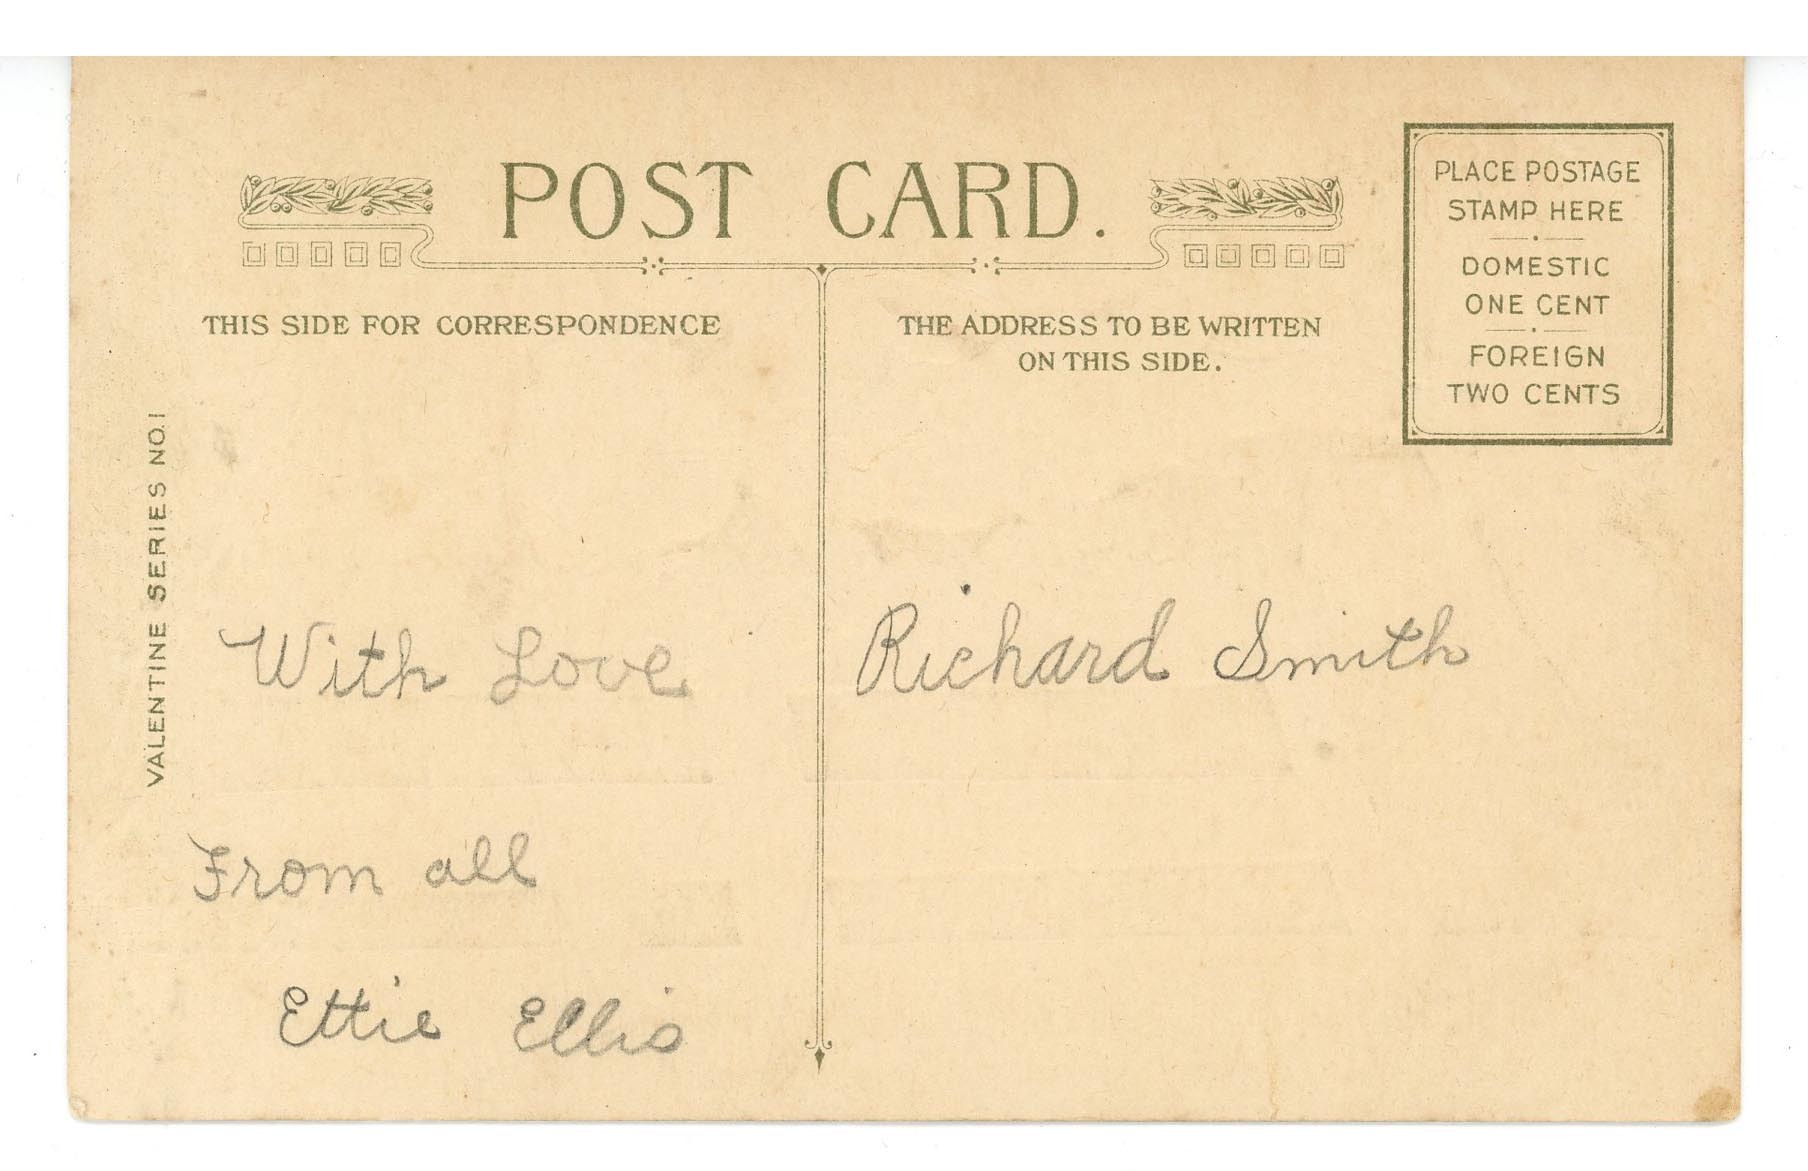 POST CARD.
PLACE POSTAGE
STAMP HERE
DOMESTIC
ONE CENT
FOREIGN
TWO CENTS
THIS SIDE FOR CORRESPONDENCE
THE ADDRESS TO BE WRITTEN
ON THIS SIDE.
VALENTINE SERIES NO.1
With Love
From all
Ettie Ellis
Richard Smith